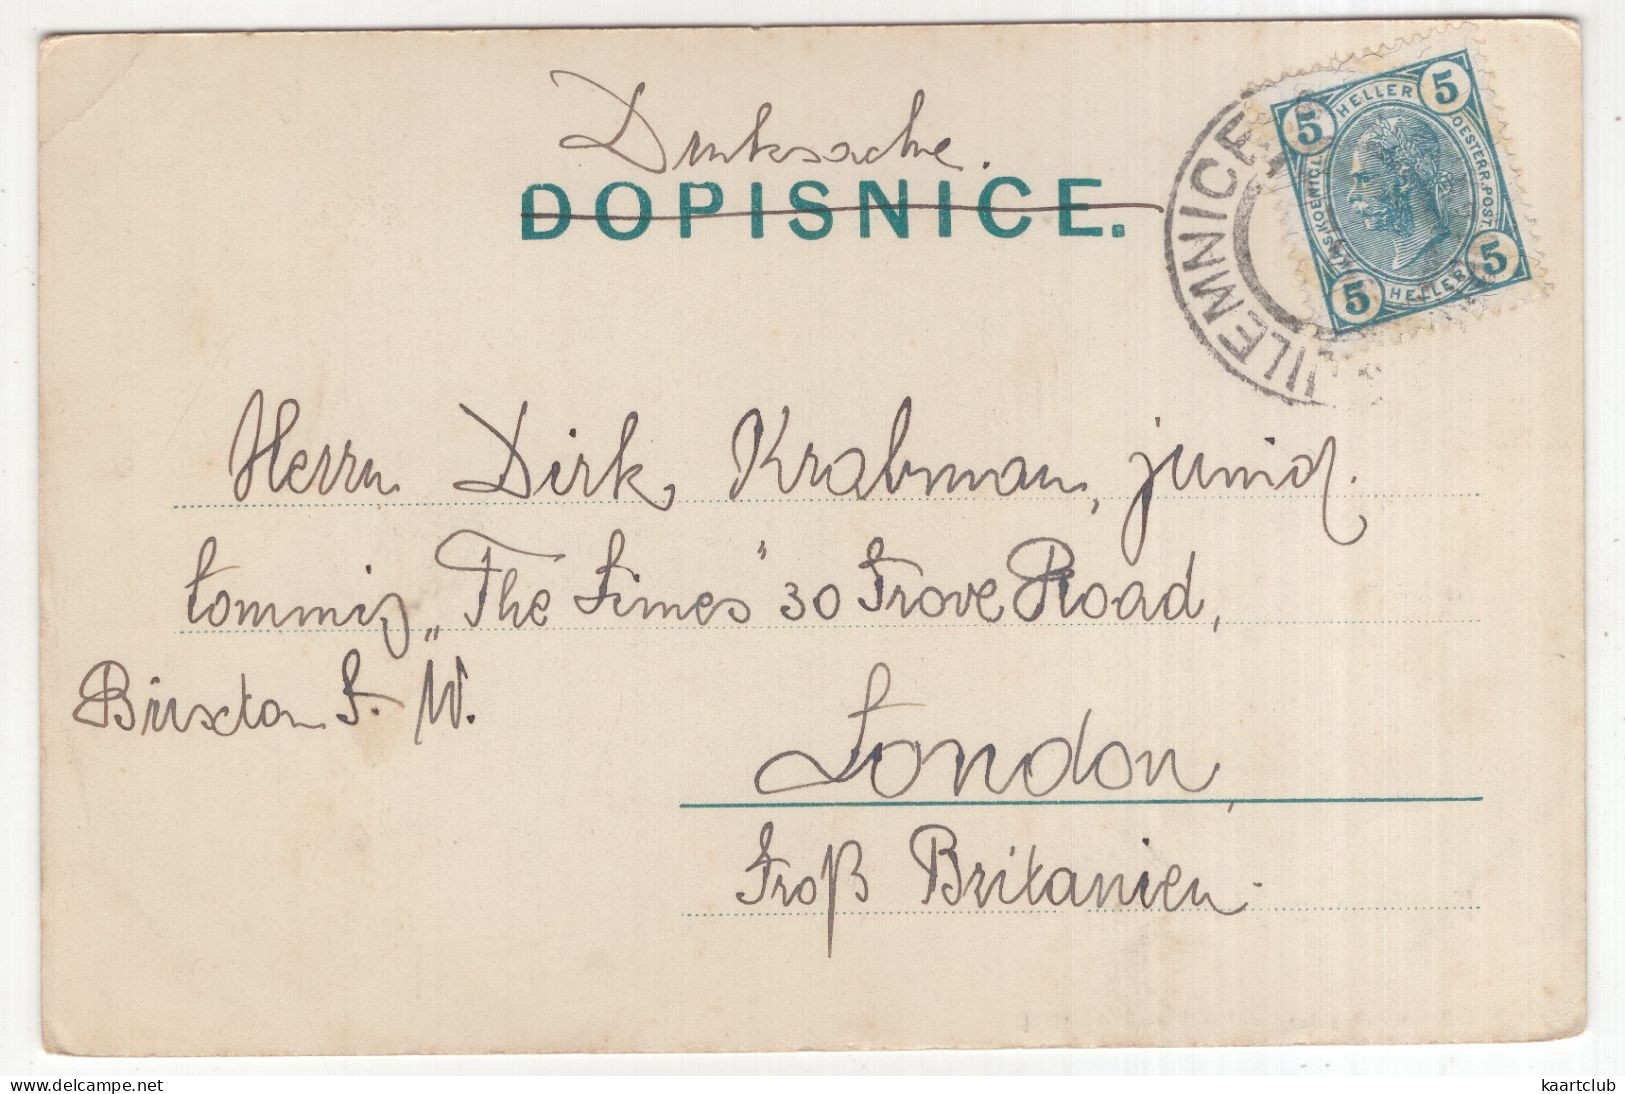 Drucksache.
DOPISNICE.
JILEMNICE
5 HELLER 5
KAIS. KOENIGL. OESTERR. POST.
5 HELLER 5
Herrn Dirk Krabman, junior.
Commis „The Times" 30 Grove Road,
Brixton S. W.
London,
Groß Britanien.
delcampe.net
kaartclub